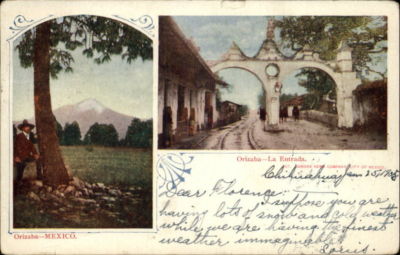 Orizaba—La Entrada.
Orizaba—MEXICO.
Chihuahua, Jan 25, 1905
Dear Florence:— I suppose you are
having lots of snow and cold weather
while we are having the finest
weather immaginable.